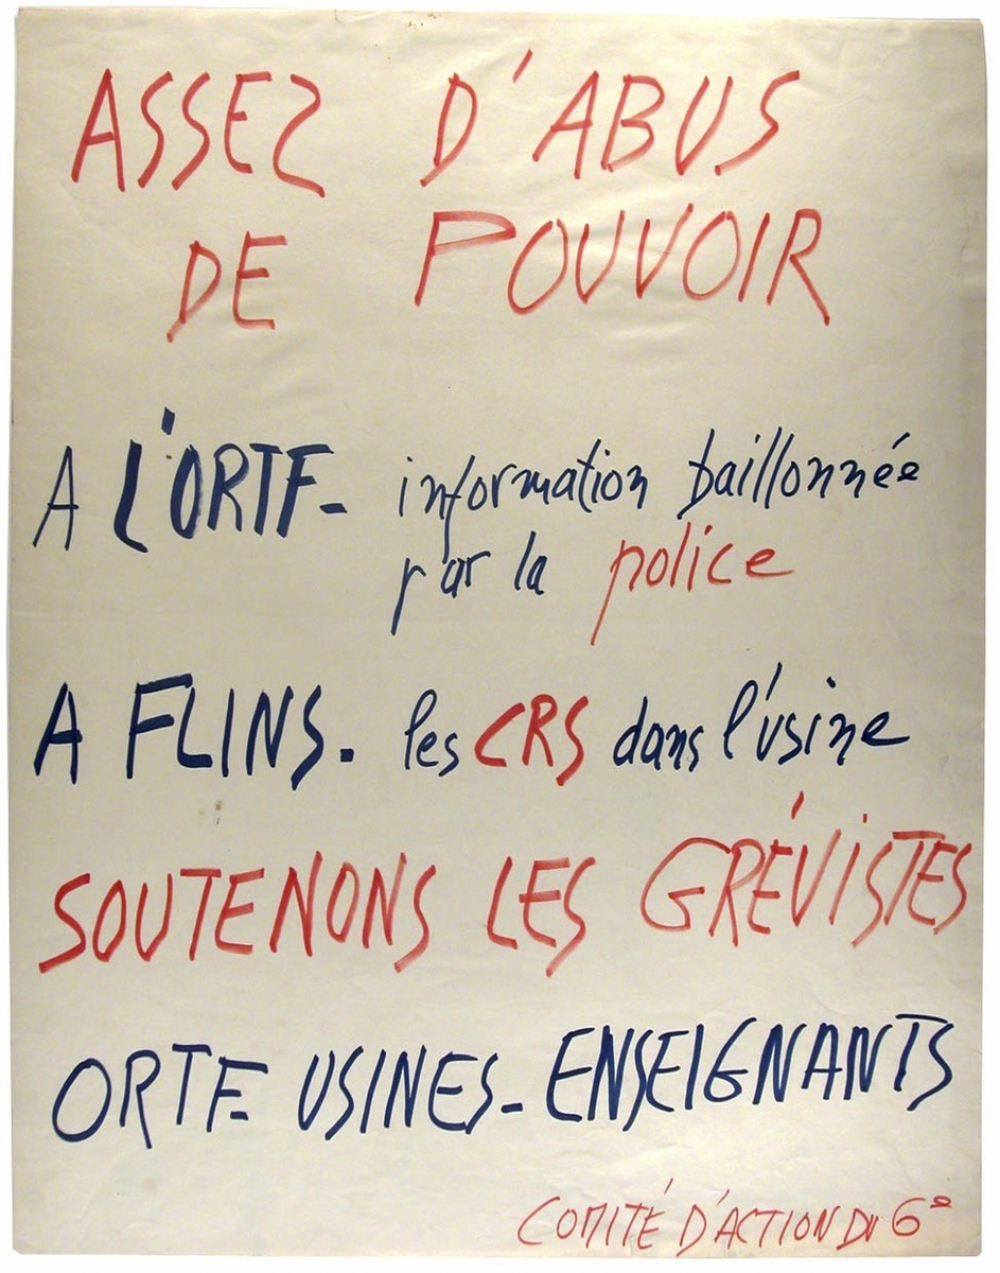 ASSEZ D'ABUS
DE POUVOIR
A L'ORTF - information baillonnée
par la police
A FLINS. les CRS dans l'usine
SOUTENONS LES GRÉVISTES
ORTF - USINES - ENSEIGNANTS
COMITÉ D'ACTION DU 6e